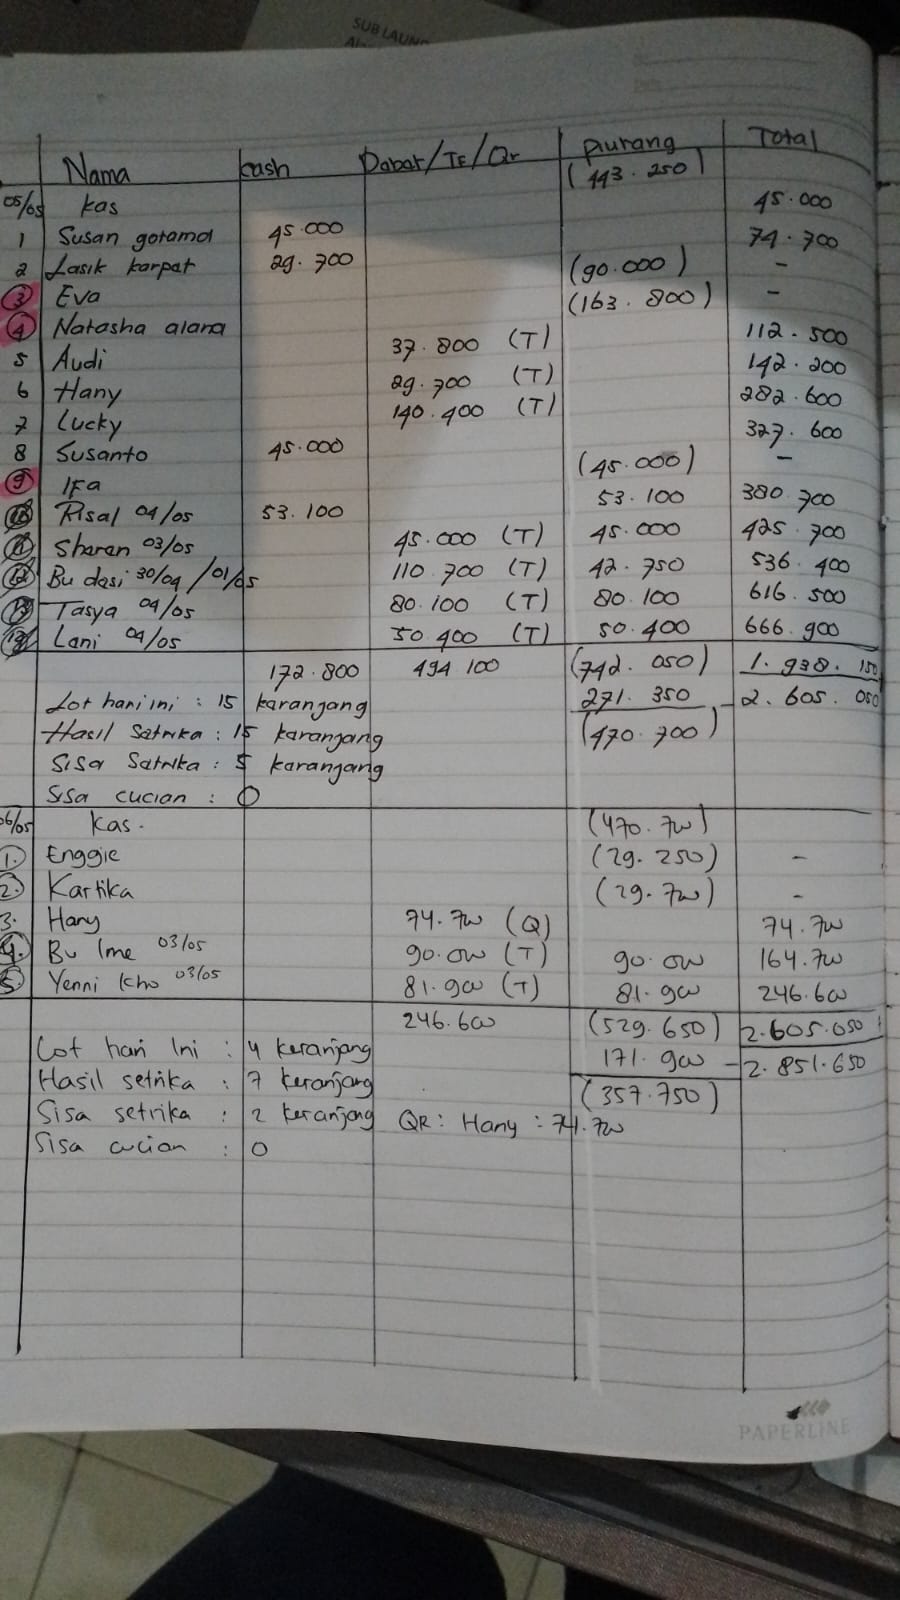 SUB LAUN
Nama Cash Debet/TF/Qr Piutang Total
05/05 Kas (443.250)
1 Susan gotama 45.000 45.000
2 Lasik karpat 29.700 74.700
3 Eva (90.000) -
4 Natasha alana (163.800) -
5 Audi 37.800 (T) 112.500
6 Hany 29.700 (T) 142.200
7 Lucky 140.400 (T) 282.600
8 Susanto 45.000 327.600
9 IFa (45.000) -
10 Risal 04/05 53.100 53.100 380.700
11 Sharen 03/05 45.000 (T) 45.000 425.700
12 Bu dasi 30/04 /01/05 110.700 (T) 42.750 536.400
13 Tasya 04/05 80.100 (T) 80.100 616.500
Lani 04/05 50.400 (T) 50.400 666.900
172.800 494.100 (742.050) 1.938.150
Lot hari ini : 15 karangang 271.350 2.605.050
Hasil Satrika : 15 karangang (470.700)
Sisa Satrika : 5 karangang
Sisa cucian : 0
06/05 Kas. (470.700)
1. Enggie (29.250) -
2. Kartika (29.700) -
3. Hany 74.700 (Q) 74.700
4. Bu Ime 03/05 90.000 (T) 90.000 164.700
5. Yenni Kho 03/05 81.900 (T) 81.900 246.600
246.600 (529.650) 2.605.050
Lot hari Ini : 4 keranjang 171.900 - 2.851.650
Hasil setrika : 7 keranjang (357.750)
Sisa setrika : 2 keranjang QR : Hany : 74.700
Sisa cucian : 0
PAPERLINE